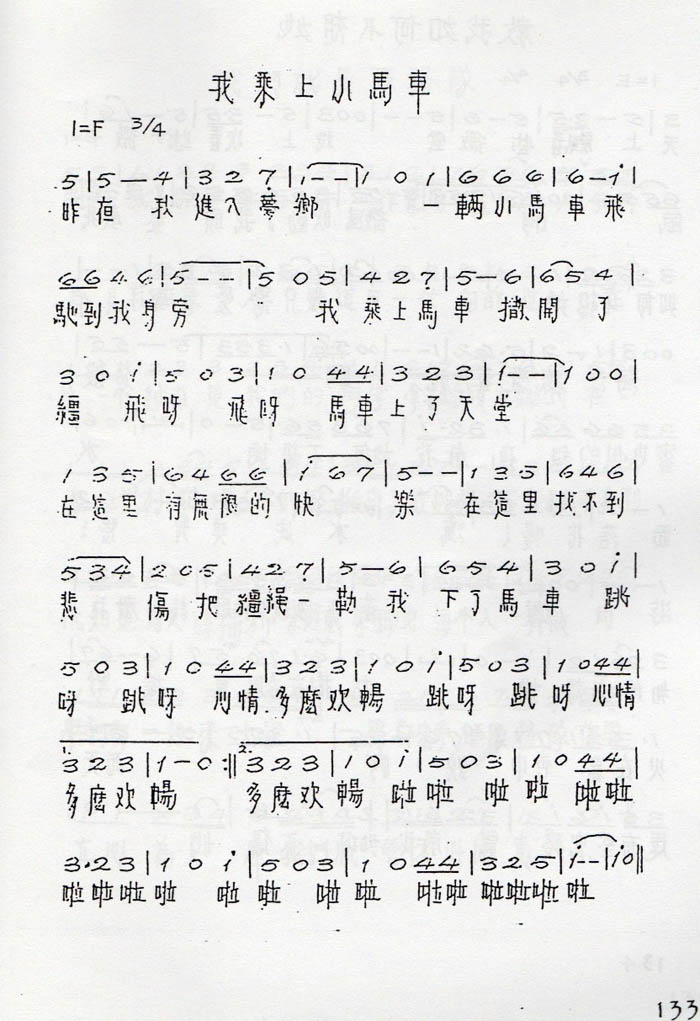 我乘上小馬車
1=F 3/4
5|5—4|3 2 7̣|1——|1 0 1|6 6 6|6—i|
昨夜 我進入夢鄉 一輛小馬車飛
6 6 4 6|5———|5 0 5|4 2 7̣|5—6|6 5 4|
馳到我身旁 我乘上馬車撒開了
3 0 i|5 0 3|1 0 4 4|3 2 3|1——|1 0 0|
繮 飛呀 飛呀 馬車上了天堂
1 3 5|6 4 6 6|i 6 7|5——|1 3 5|6 4 6|
在這里有無限的快 樂 在這里找不到
5 3 4|2 0 5|4 2 7̣|5—6|6 5 4|3 0 i|
悲 傷 把繮繩一勒我 下了馬車 跳
5 0 3|1 0 4 4|3 2 3|1 0 i|5 0 3|1 0 4 4|
呀 跳呀 心情多麽欢暢 跳呀 跳呀 心情
1. 3 2 3|1—0:‖ 2. 3 2 3|1 0 i|5 0 3|1 0 4 4|
多麽欢暢 多麽欢暢 啦啦 啦啦 啦啦
3·2 3|1 0 i|5 0 3|1 0 4 4|3 2 5|i——|i 0‖
啦啦啦啦 啦啦 啦啦 啦啦啦啦啦啦
133